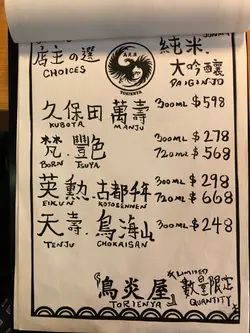 店主の選
CHOICES
TORIENYA
純米.
大吟釀
DAIGINJO
久保田 萬壽 300ML $598
KUBOTA MANJU
梵.艷 300ML $278
BORN TSUYA 720ML $568
英勲.古都千年 300ML $298
EIKUN KOTOSENNEN 720ML $668
天壽.鳥海山 300ML $248
TENJU CHOKAISAN
『鳥炎屋』
TORIENYA
*LIMITED
數量限定
QUANTITY